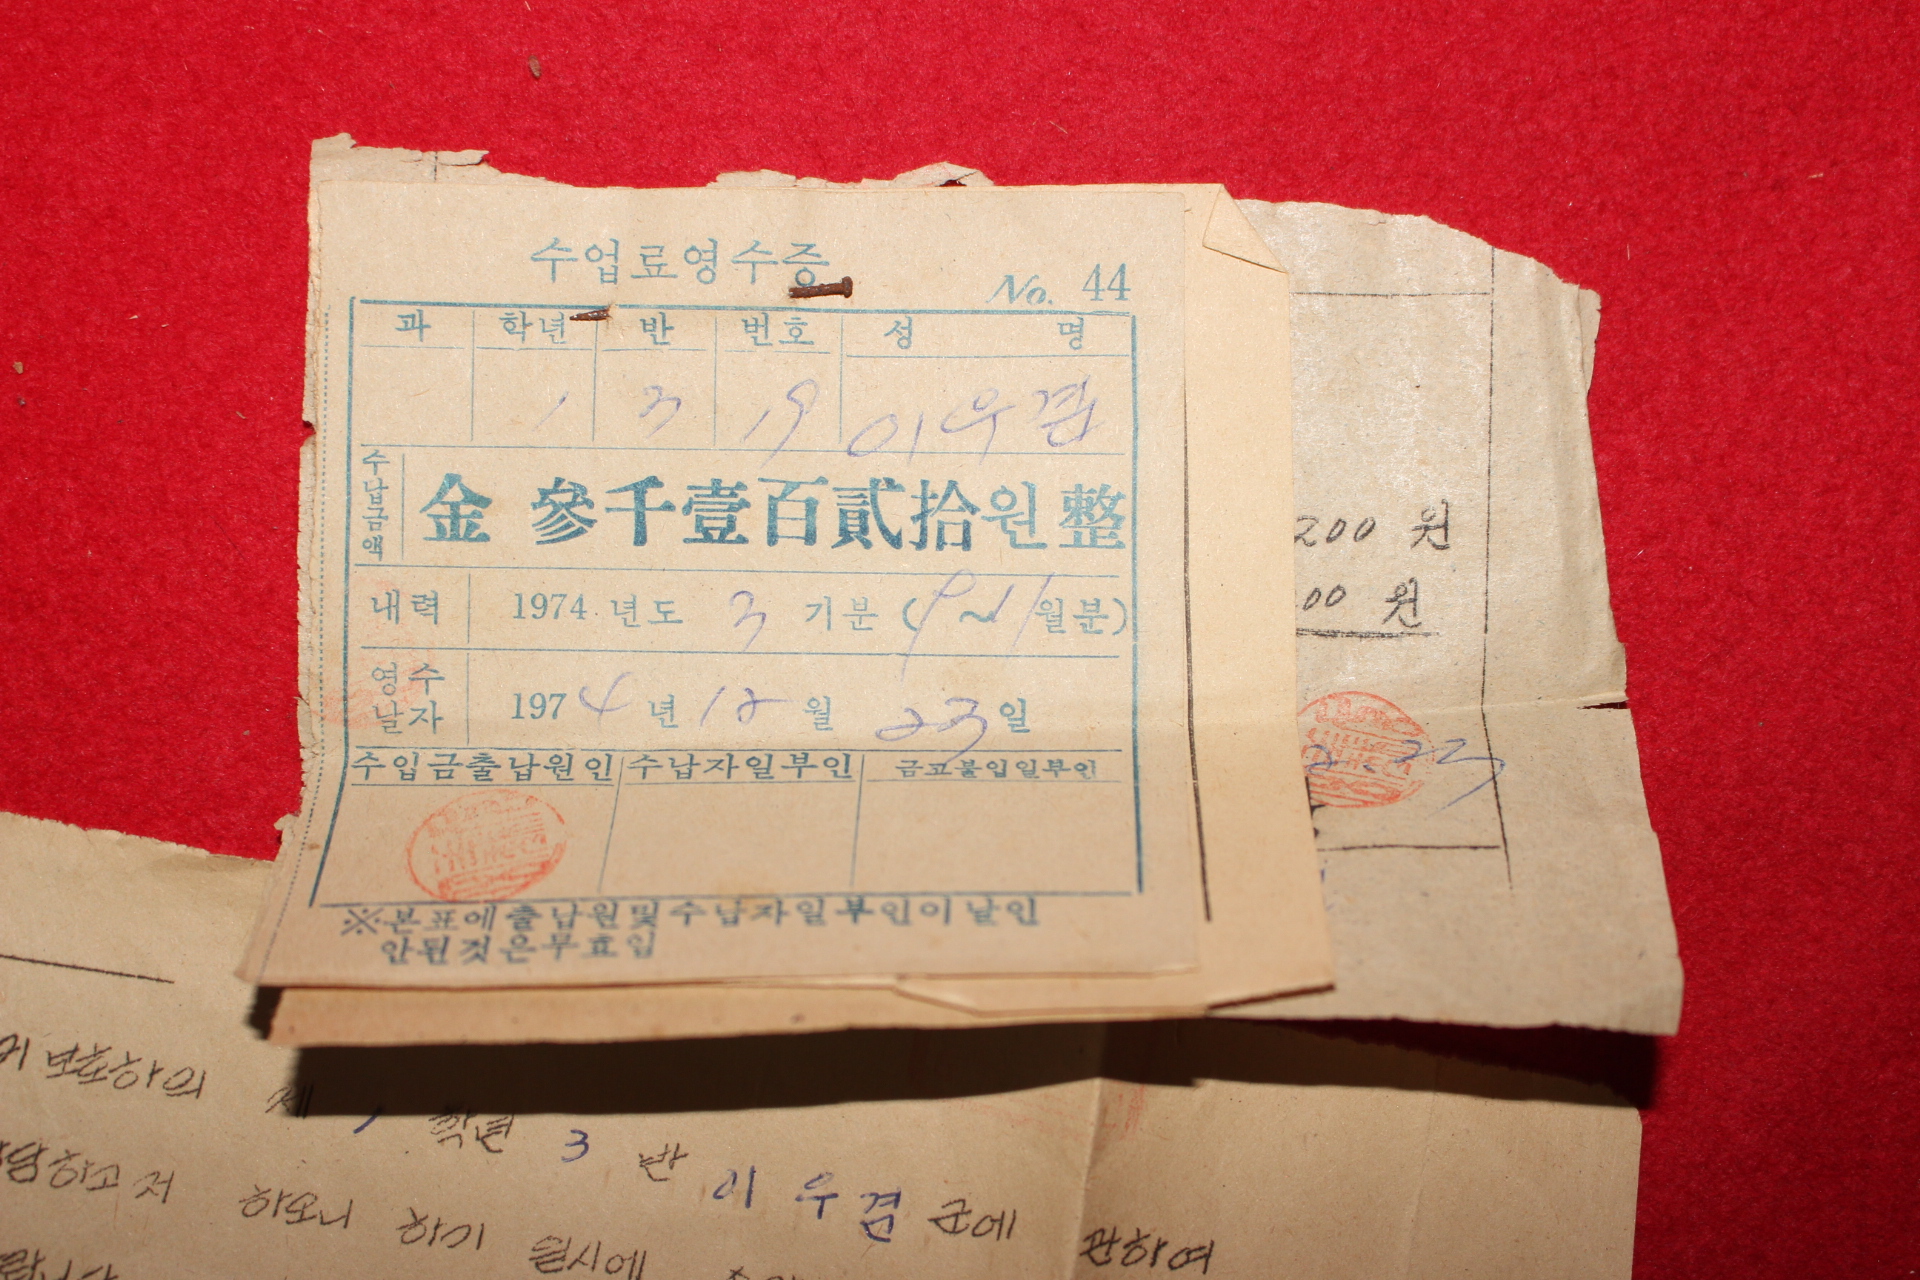 수업료영수증
No. 44
과 학년 반 번호 성 명
1 3 19 이우겸
수납금액 金 參千壹百貳拾원整
내력 1974 년도 3 기분 (9~11월분)
영수날자 1974년 12월 23일
수입금출납원인 수납자일부인 금고불입일부인
※본표에출납원및수납자일부인이날인
안된것은무효임
200 원
00 원
2. 23
보호하의 제 1 학년 3 반 이우겸 군에 관하여
담하고저 하오니 하기 일시에